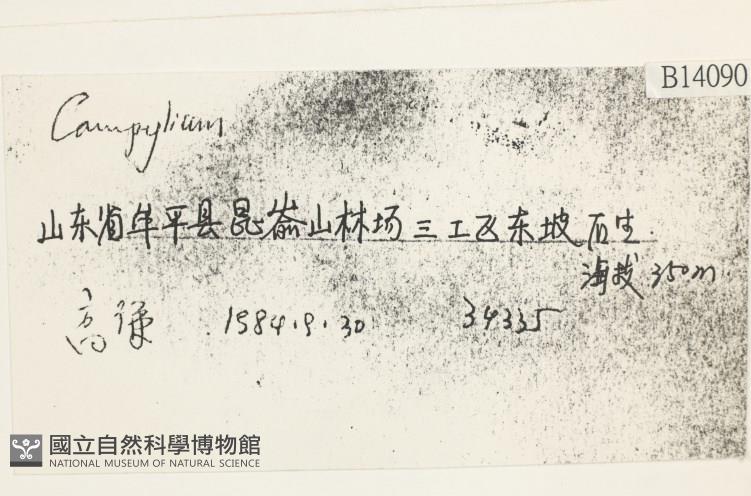 B14090
Campylium
山东省牟平县昆嵛山林场三工区东坡 石生.
海拔 350m.
高谦 1984.9.30 34335
國立自然科學博物館
NATIONAL MUSEUM OF NATURAL SCIENCE